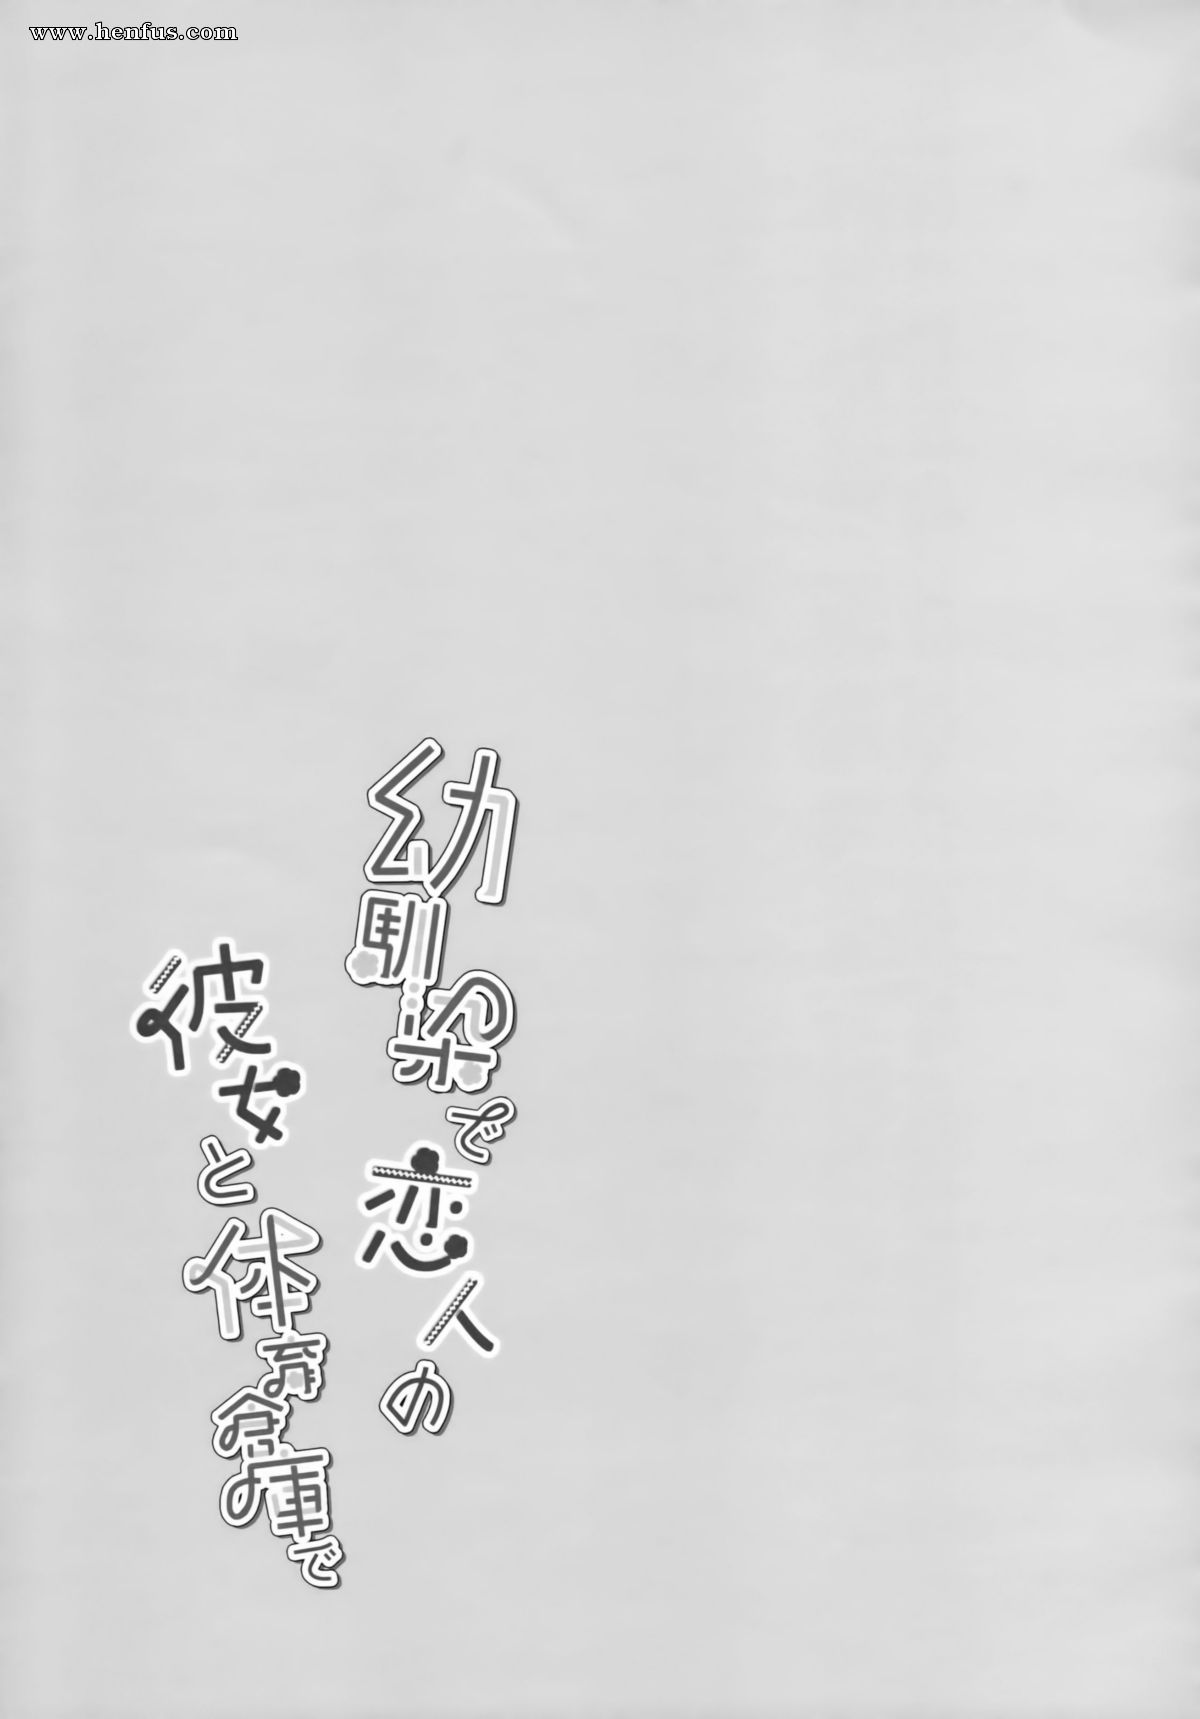 www.henfus.com
幼馴染で恋人の
彼女と体育倉庫で